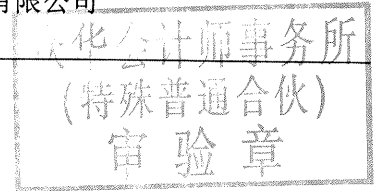 有限公司
大华会计师事务所
(特殊普通合伙)
审验章